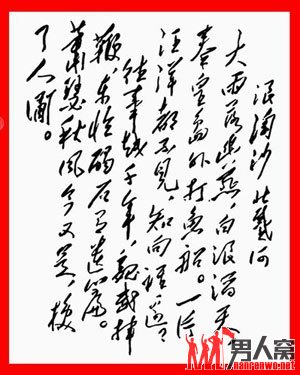 浪淘沙 北戴河
大雨落幽燕,白浪滔天,
秦皇岛外打鱼船。一片
汪洋都不见,知向谁边?
往事越千年,魏武挥
鞭,东临碣石有遗篇。
萧瑟秋风今又是,换
了人间。
男人窝
www.nanrenwo.net